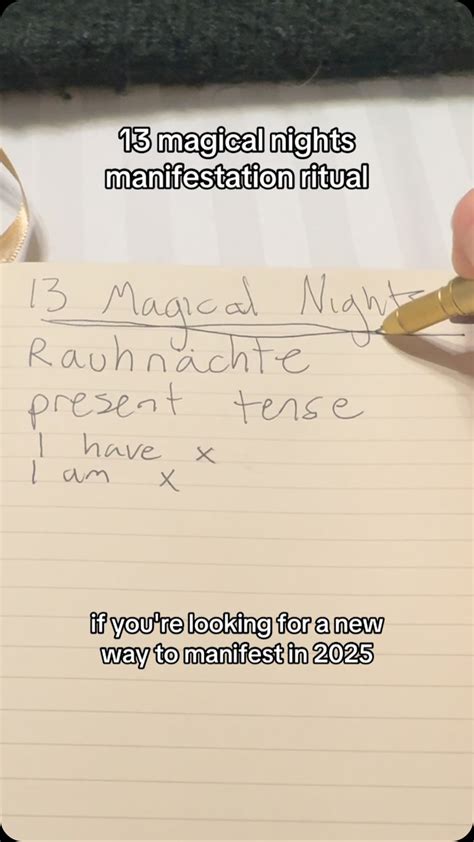 13 magical nights
manifestation ritual
13 Magical Nights
Rauhnächte
present tense
I have x
I am x
if you're looking for a new
way to manifest in 2025